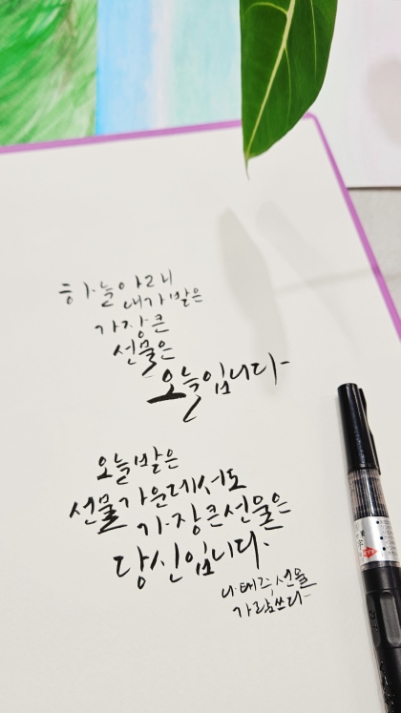 하늘아래
내가 받은
가장 큰
선물은
오늘입니다
오늘 받은
선물 가운데서도
가장 큰 선물은
당신입니다.
나태주, 선물
가람쓰다